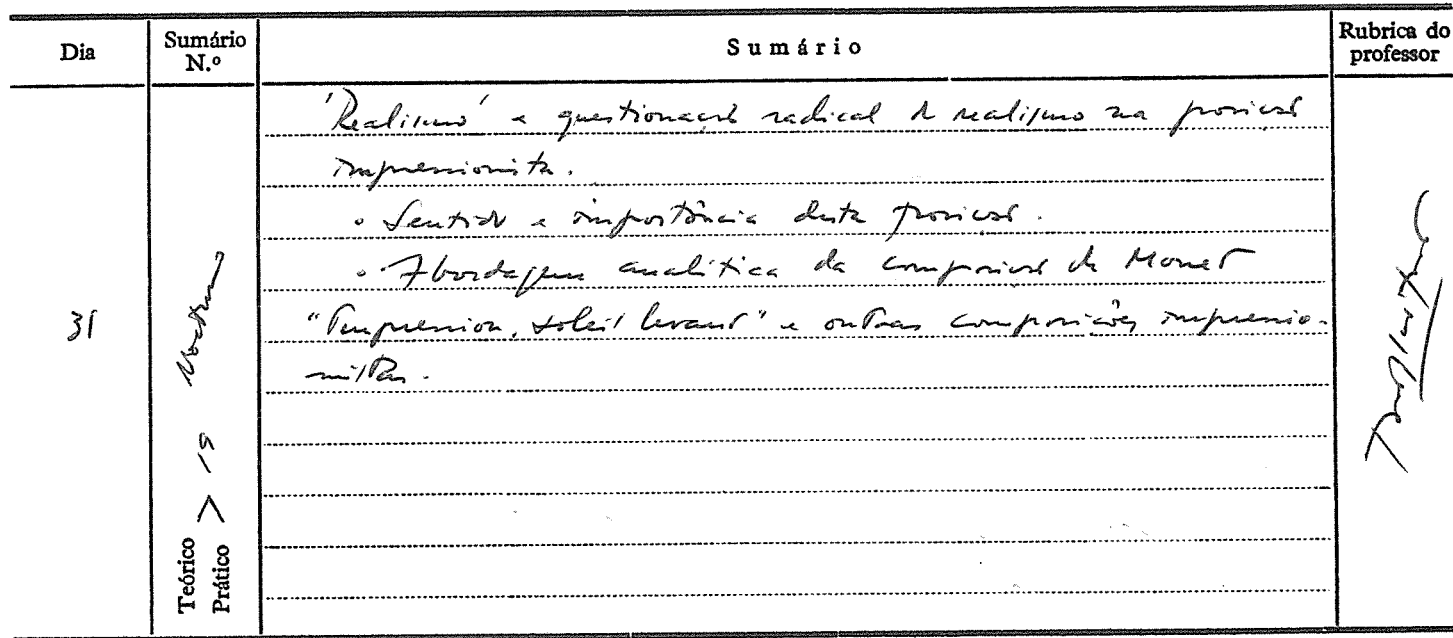 Dia
Sumário N.º
Sumário
Rubrica do professor
31
Teórico Prático > 19
'Realismo' e questionação radical do realismo na posição
impressionista.
• Sentido e importância desta posição.
• Abordagem analítica da composição de Monet
"Impression, soleil levant" e outras composições impressio-
nistas.